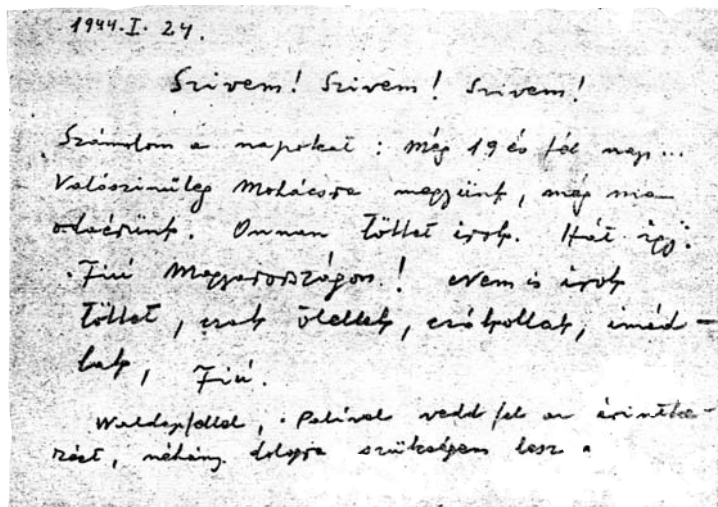 1944. I. 24.
Szivem! Szivem! Szivem!
Számolom a napokat: még 19 és fél nap...
Valószinűleg Mohácsra megyünk, még ma
odaérünk. Onnan többet irok. Hát igy:
Fiú Magyarországon! Nem is irok
többet, csak ölellek, csókollak, imád-
lak, Fiú.
Waldapfellel, Palival vedd fel az érintke-
zést, néhány dologra szükségem lesz.